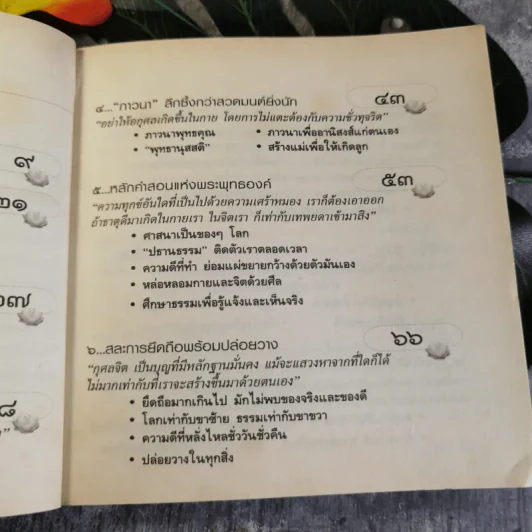 ๙
๒๑
๒๗
๘
๔..."ภาวนา" ลึกซึ้งกว่าสวดมนต์ยิ่งนัก ๔๓
"อย่าให้อกุศลเกิดขึ้นในกาย โดยการไม่แตะต้องกับความชั่วทุจริต"
• ภาวนาพุทธคุณ • ภาวนาเพื่ออานิสงส์แก่ตนเอง
• "พุทธานุสสติ" • สร้างแม่เพื่อให้เกิดลูก
๕...หลักคำสอนแห่งพระพุทธองค์ ๕๓
"ความทุกข์อันใดที่เป็นไปด้วยความเศร้าหมอง เราก็ต้องเอาออก
ถ้าธาตุดีมาเกิดในกายเรา ในจิตเรา ก็เท่ากับเทพยดาเข้ามาสิง"
• ศาสนาเป็นของๆ โลก
• "ปธานธรรม" ติดตัวเราตลอดเวลา
• ความดีที่ทำ ย่อมแผ่ขยายกว้างด้วยตัวมันเอง
• หล่อหลอมกายและจิตด้วยศีล
• ศึกษาธรรมเพื่อรู้แจ้งและเห็นจริง
๖...สละการยึดถือพร้อมปล่อยวาง ๖๖
"กุศลจิต เป็นบุญที่มีหลักฐานมั่นคง แม้จะแสวงหาจากที่ใดก็ได้
ไม่มากเท่ากับที่เราจะสร้างขึ้นมาด้วยตนเอง"
• ยึดถือมากเกินไป มักไม่พบของจริงและของดี
• โลกเท่ากับขาซ้าย ธรรมเท่ากับขาขวา
• ความดีที่หลั่งไหลชั่ววันชั่วคืน
• ปล่อยวางในทุกสิ่ง